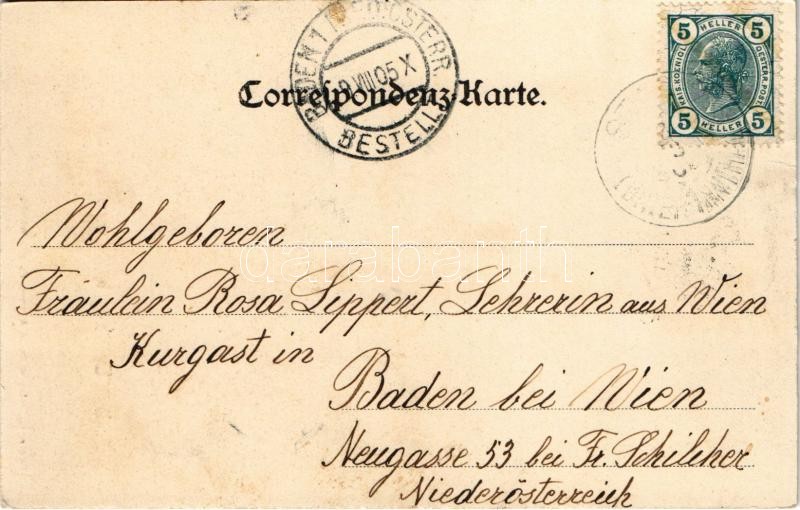 BADEN 1 NIEDERÖSTERR.
9 VIII 05 X
BESTELLT
5 HELLER 5
KAIS. KOENIGL. OESTERR. POST.
5 HELLER 5
Correspondenz-Karte.
Wohlgeboren
darabanth
Fräulein Rosa Lippert, Lehrerin aus Wien
Kurgast in
Baden bei Wien
Neugasse 53 bei Fr. Schilcher
Niederösterreich